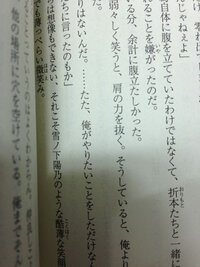 じゃねぇよ」
自体に腹を立てていたわけではなくて、折本たちと一緒に
れることを嫌がったのだ。
る分、余計に腹立たしか
弱々しく笑うと、肩の力を抜く。そうしていると、俺より
りはないんだ。……ただ、俺がやりたいことをしただけなん
ちに言ったのもか」
は想像もできない、それこそ雪ノ下陽乃のような酷薄な笑顔
薄っぺらい微笑み。
の場所に穴を空けている。俺までそん